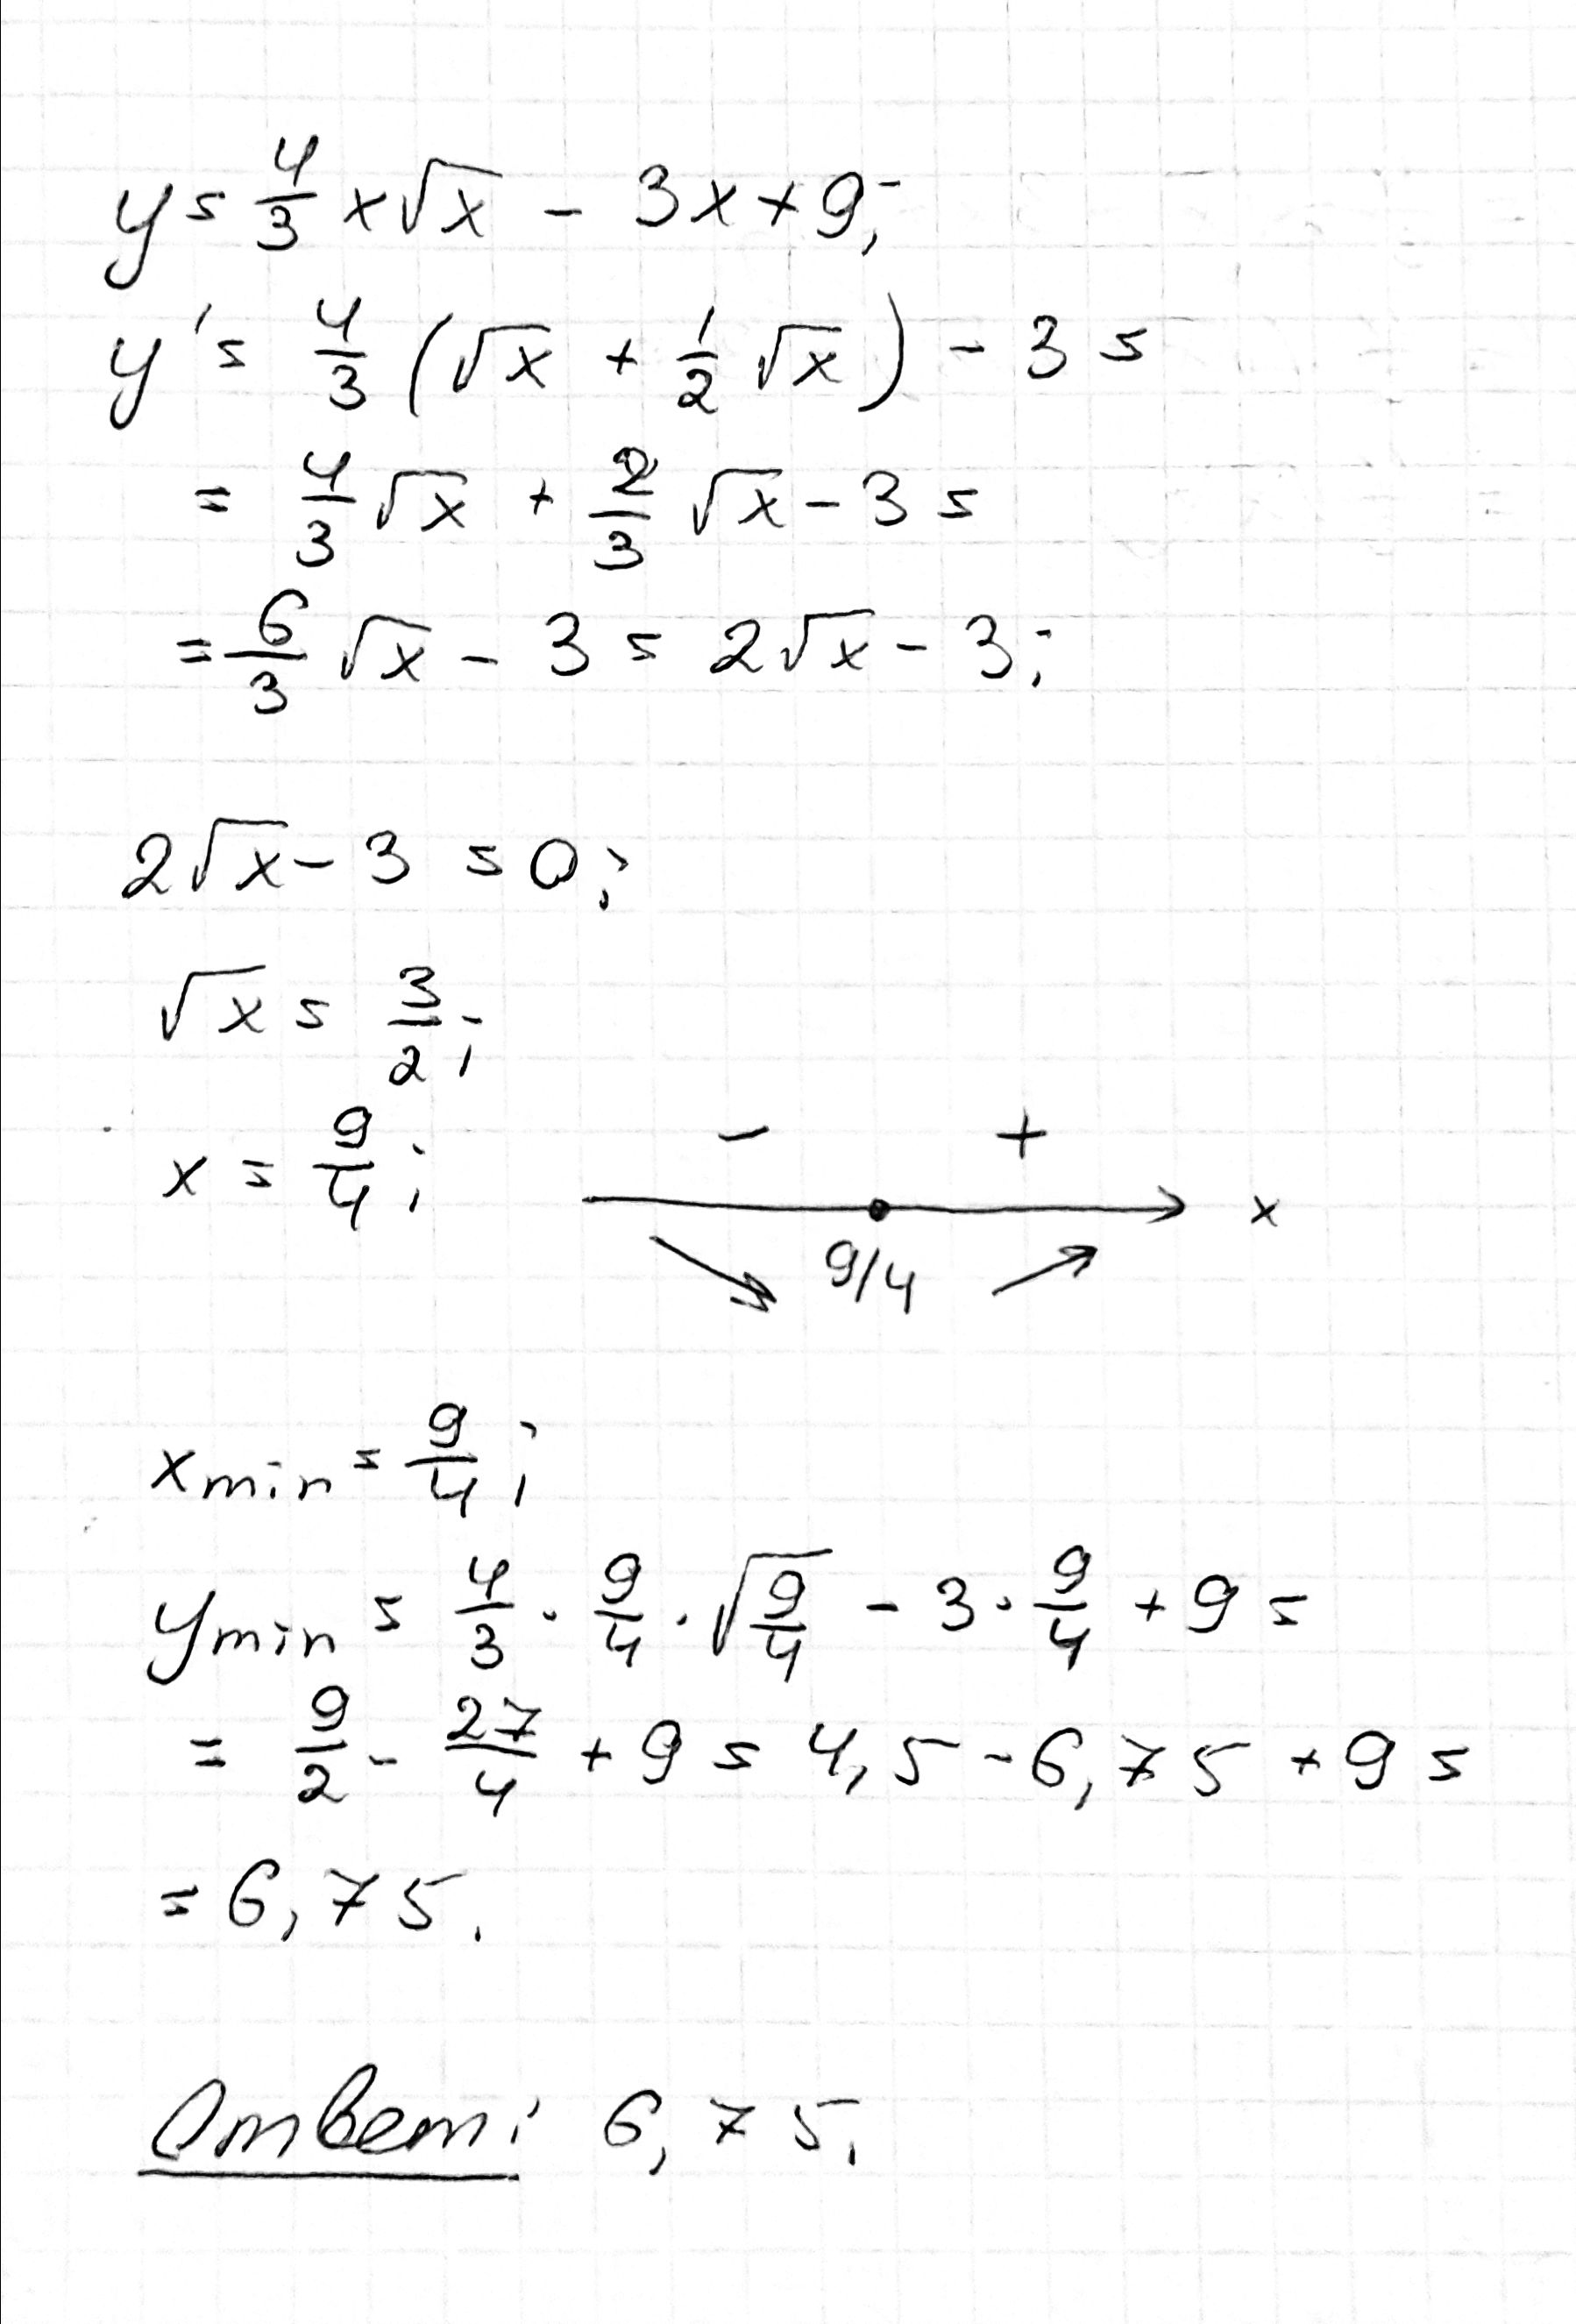 y = 4/3 x√x - 3x + 9;
y' = 4/3 (√x + 1/2 √x) - 3 =
= 4/3 √x + 2/3 √x - 3 =
= 6/3 √x - 3 = 2√x - 3;
2√x - 3 = 0;
√x = 3/2;
x = 9/4;
- +
x
9/4
xmin = 9/4;
ymin = 4/3 · 9/4 · √9/4 - 3 · 9/4 + 9 =
= 9/2 - 27/4 + 9 = 4,5 - 6,75 + 9 =
= 6,75.
Ответ: 6,75.